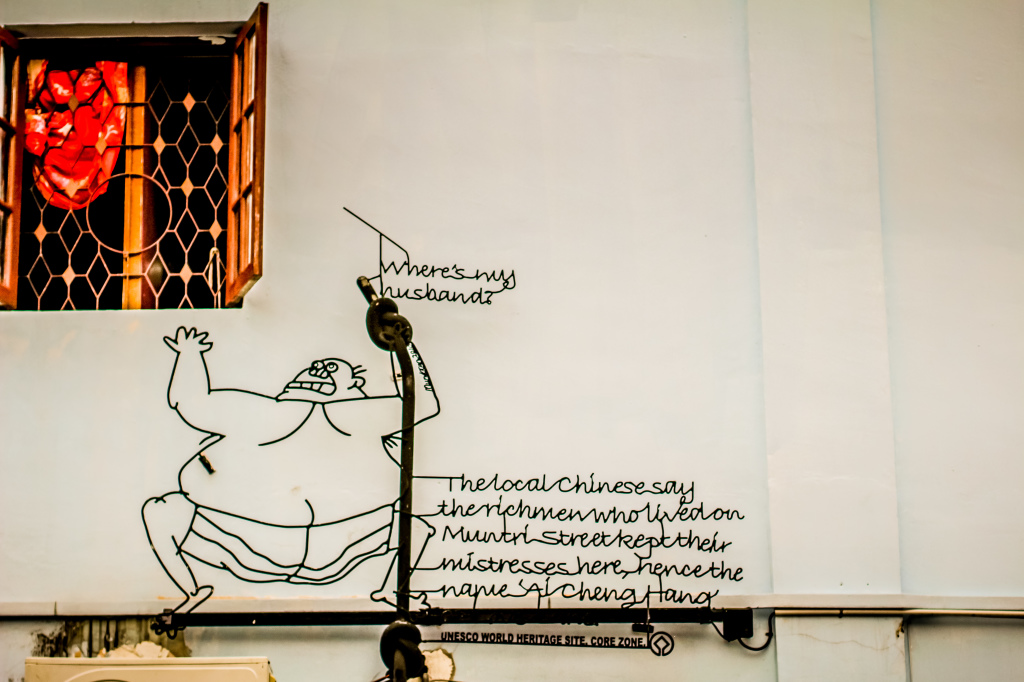 Where's my
husband?
The local Chinese say
the rich men who lived on
Muntri Street kept their
mistresses here, hence the
name 'Ai Cheng Hang
UNESCO WORLD HERITAGE SITE. CORE ZONE.